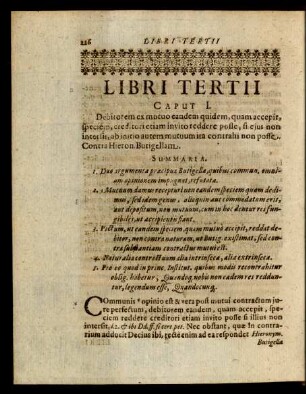 126 LIBRI TERTII
LIBRI TERTII
CAPUT I.
Debitorem ex mutuo eandem quidem, quam accepit,
speciem, creditori etiam invito reddere posse, si ejus non
intersit, ab initio autem mutuum ita contrahi non posse.
Contra Hieron. Butigellam.
SUMMARIA.
1. Duo argumenta præcipua Butigellæ, quibus commun. omni-
um opinionem impugnat, refutata.
2. Mutuum damus recepturi non eandem speciem quam dedi-
mus, sed idem genus, alioquin aut commodatum erit,
aut depositum, non mutuum, cum in hoc dentur res fungi-
biles, ut accipientis fiant.
3. Pactum, ut eandem speciem, quam mutuo accepit, reddat de-
bitor, non contra naturam, ut Butig. existimat, sed con-
tra substantiam contractus mutui est.
4. Naturalia contractuum alia intrinseca, alia extrinseca.
5. Pro eo quod in princ. Institut. quibus modis recontrahitur
oblig. habetur, Quandoq; nobis non eædem res reddun-
tur, legendum esse, Quandocunq;
Communis opinio est & vera post mutui contractum ju-
re perfectum, debitorem eandem, quam accepit, spe-
ciem reddere creditori etiam invito posse si illius non
intersit, l. 2. & ibi Dd. ff. si cert. pet. Nec obstant, quæ in contra-
rium adducit Decius ibi, recte enim ad ea respondet Hieronym.
Butigella